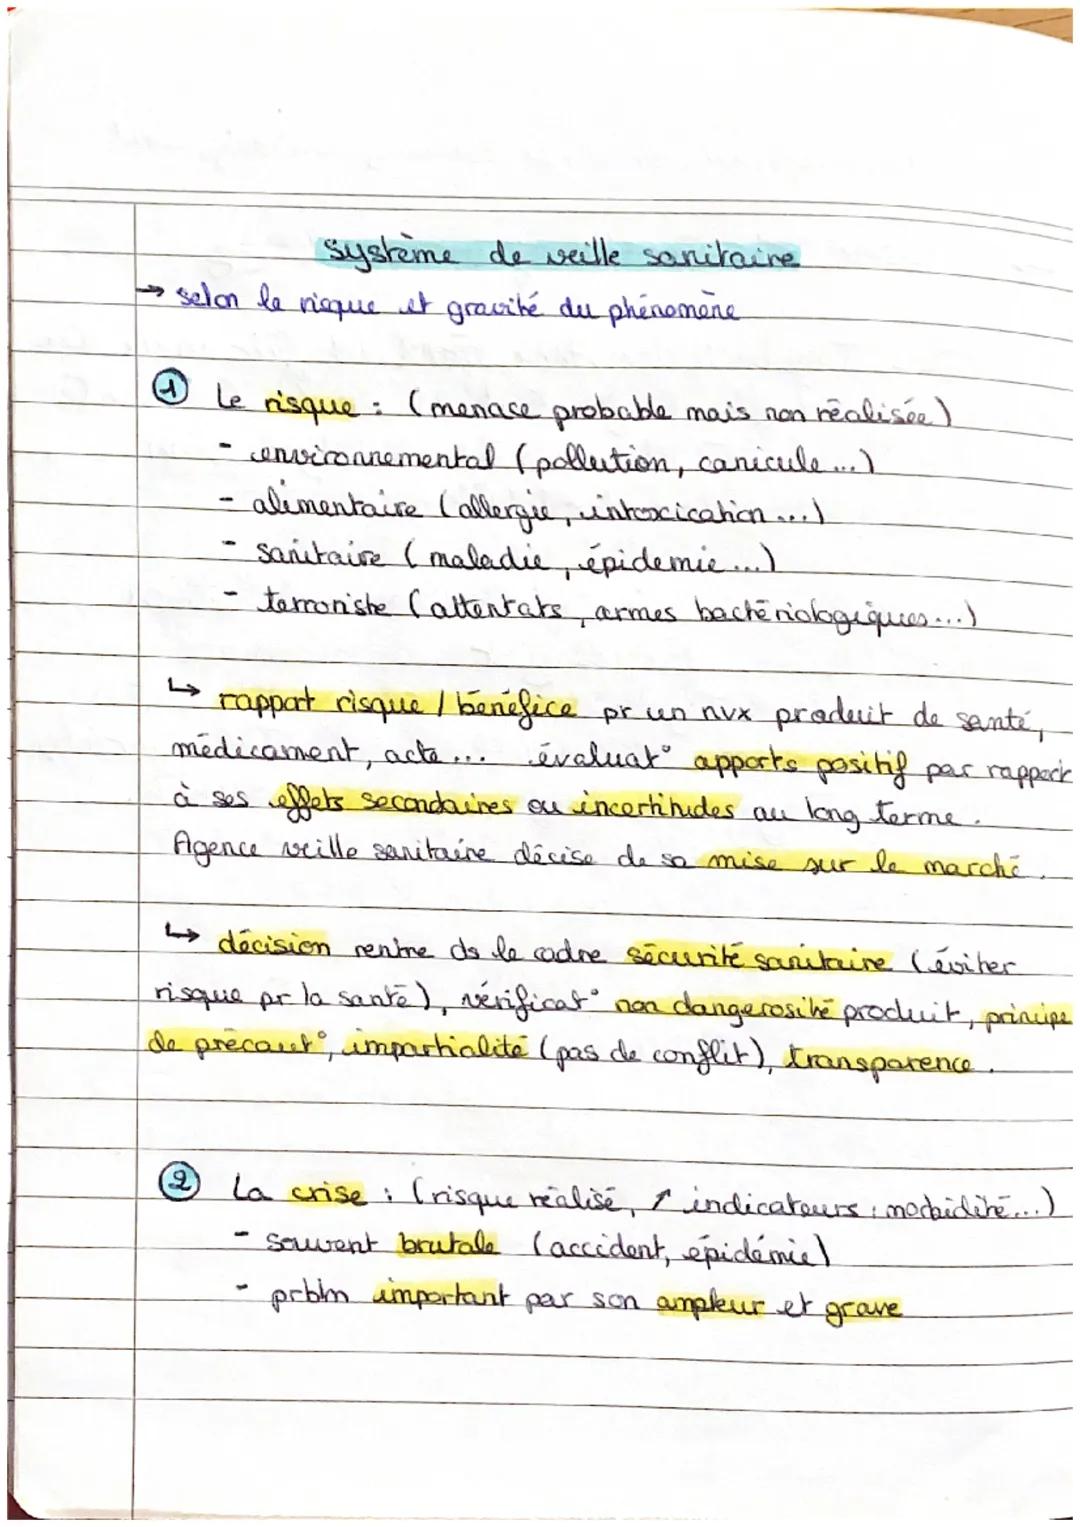 système de veille sanitaire
→ selon le risque et gravité du phénomène
① Le risque : (menace probable mais non réalisée)
- environnemental (pollution, canicule...)
- alimentaire (allergie, intoxication...)
- sanitaire (maladie, épidemie...)
- terroriste (attentats, armes bactériologiques...)
↳ rapport risque / bénéfice pr un nvx produit de santé,
médicament, acte... évaluat° apports positif par rapport
à ses effets secondaires ou incertitudes au long terme.
Agence veille sanitaire décise de sa mise sur le marché.
↳ décision rentre ds le cadre sécurité sanitaire (éviter
risque pr la santé), vérificat° non dangerosité produit, principe
de précaut°, impartialité (pas de conflit), transparence.
② La crise : (risque réalisé, ↑ indicateurs : morbidité...)
- souvent brutale (accident, épidémie)
- prblm important par son ampleur et grave